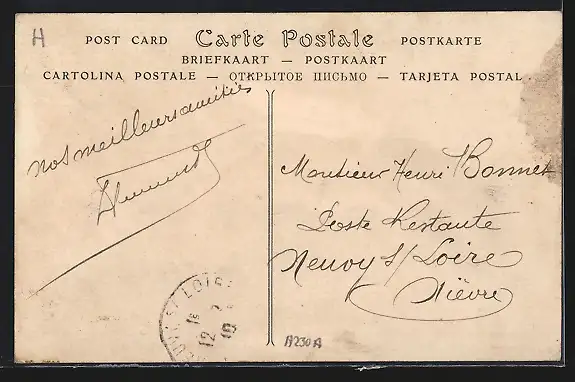 H
POST CARD Carte Postale POSTKARTE
BRIEFKAART — POSTKAART
CARTOLINA POSTALE — ОТКРЫТОЕ ПИСЬМО — TARJETA POSTAL
nos meilleurs amitiés
Monsieur Henri Bonnet
Poste Restante
Neuvy s/ Loire
Nièvre
LOIRE
12
A230A